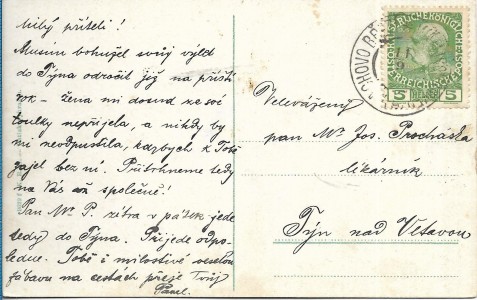 Milý příteli!
Musím bohužel svůj výlet
do Týna odročit již na příští
rok – žena mi dosud ze své
toulky nepřijela, a nikdy by
mi neodpustila, kdybych k Tobě
zajel bez ní. Přibrhneme tedy
na Vás až společně!
Pan Mr P. zítra v pátek jede
tedy do Týna. Přijede odpo-
ledne. Tobě i milostivé veselou
zábavu na cestách přeje Tvůj
Pavel.
5 5
Velevážený
pan Mr Jos. Procházka
lékárník
Týn nad Vltavou